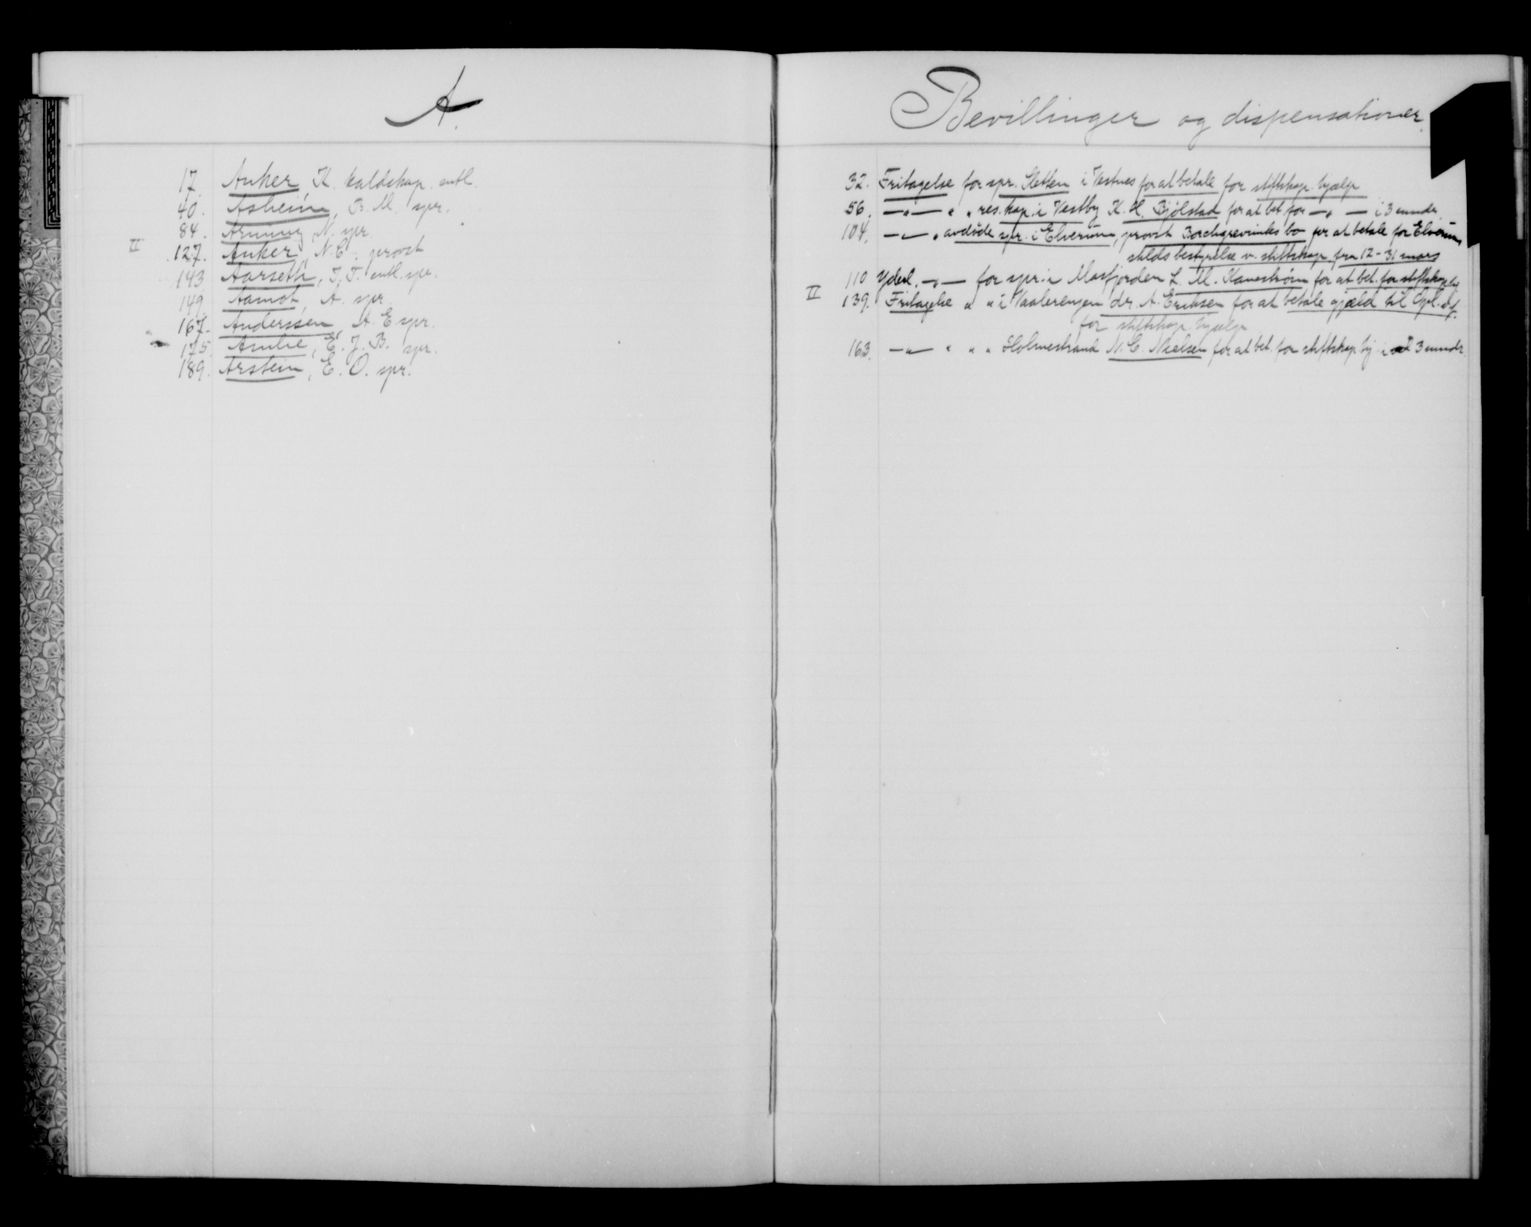 A.
17. Anker, K. kaldskap. entl.
40. Asheim, B. M. spr.
84. Arnung, N. spr.
II
127. Anker, N. C. provst
143 Aarseth, J. T. entl. spr.
149. Aamot, A. spr.
167. Anderssen, A. E spr.
175. Amlie, E. J. B. spr.
189. Arstein, E. O. spr.
Bevillinger og dispensationer.
32. Fritagelse for spr. Sletten i Vestnes for at betale for stiftskap. hjælp
56. —„— „ „ res. kap. i Vestby K. H. Bjölstad for at bet for —„— i 3 mndr.
104. —„— „ avdöde spr. i Elverum, provst Borchgrevinks bo for at betale for Elverums
stilds bestyrelse v. stiftskap. fra 12 - 31 mars
110 Yderl. —„— for spr. i Masfjorden L. M. Kanestrøm for at bet. for stiftskap. hj.
II
139. Fritagelse „ „ i Vaalerengen dr. A. Eriksen for at betale gjæld til Opl. sf.
for stiftskap. hjælp
163. —„— „ „ „ Holmestrand N. C. Nielsen for at bet. for stiftskap. hj i 3 mndr.